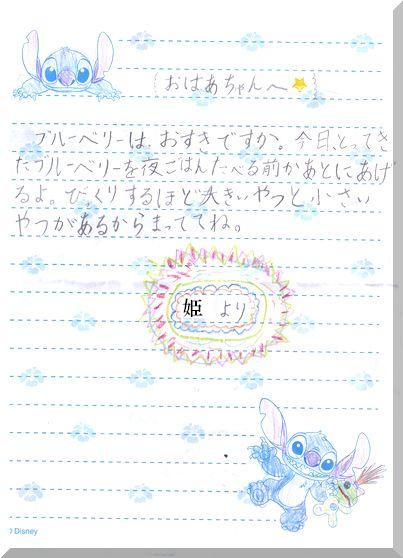 おばあちゃんへ
ブルーベリーは、おすきですか。今日、とってき
たブルーベリーを夜ごはんたべる前かあとにあげ
るよ。びっくりするほど大きいやつと小さい
やつがあるからまっててね。
姫 より
© Disney